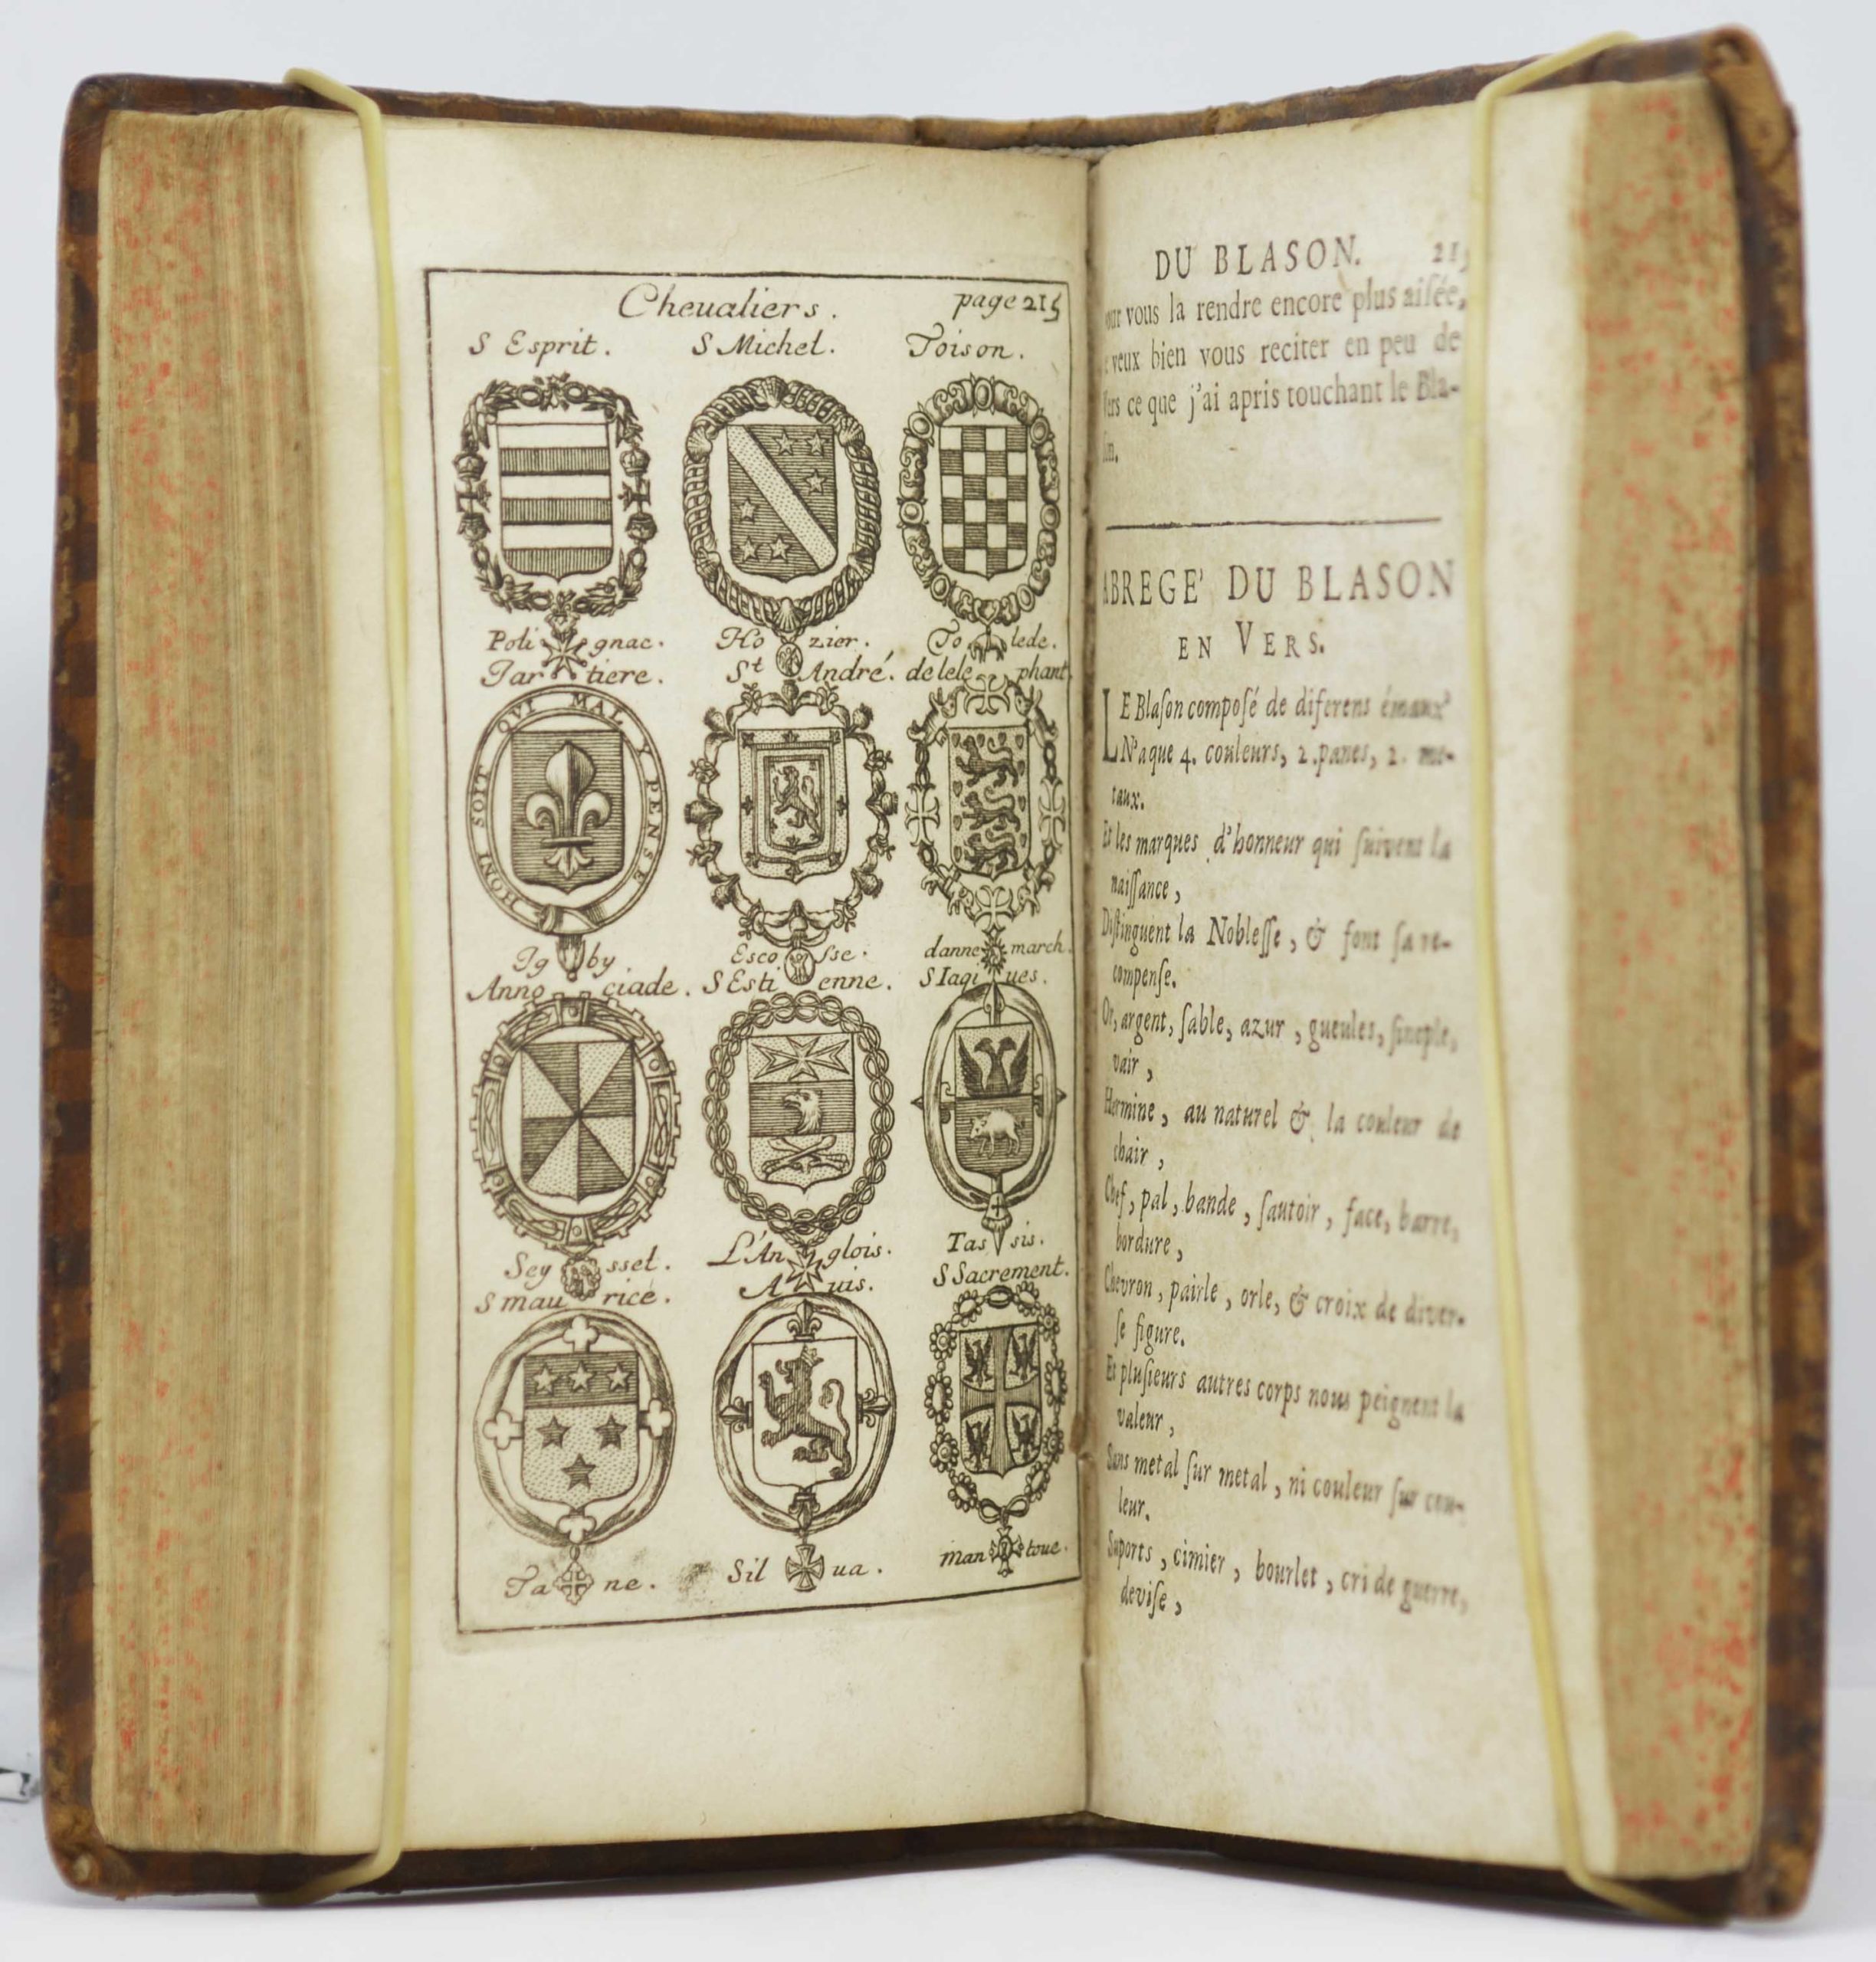 Cheualiers. page 215
S Esprit. S Michel. Toison.
Poli gnac. Ho zier. To lede.
Jar tiere. St André. de lele phant.
HONI SOIT QVI MAL Y PENSE
Ig by Esco sse. danne march.
Anno ciade. S Esti enne. S Iaqu ues.
Sey ssel. L'An glois. Tas sis.
S mau rice. A uis. S Sacrement.
Ta ne. Sil ua. man toue.
DU BLASON.
vous la rendre encore plus aisée,
veux bien vous reciter en peu de
ce que j'ai apris touchant le Bla-
ABREGE' DU BLASON
EN VERS.
LE Blason composé de diferens émaux
N'a que 4. couleurs, 2. panes, 2. me-
taux.
Et les marques d'honneur qui suivent la
naissance,
Distinguent la Noblesse, & font sa re-
compense.
Or, argent, sable, azur, gueules, sinople,
vair,
Hermine, au naturel & la couleur de
chair,
Chef, pal, bande, sautoir, face, barre,
bordure,
Chevron, pairle, orle, & croix de diver-
se figure.
Et plusieurs autres corps nous peignent la
valeur,
Sans metal sur metal, ni couleur sur cou-
leur.
Suports, cimier, bourlet, cri de guerre,
devise,